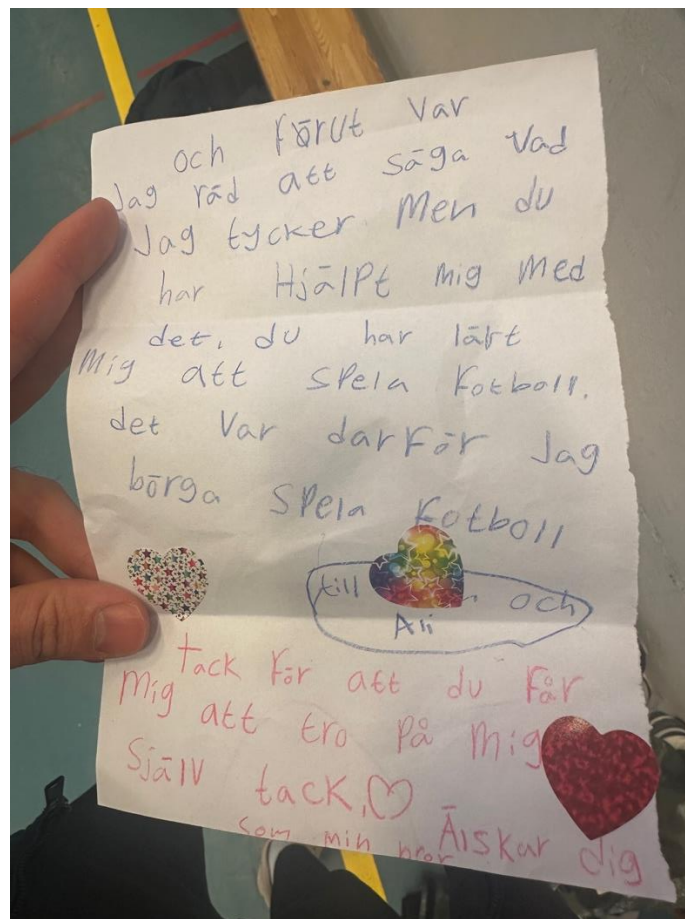 och förut var
Jag räd att säga vad
Jag tycker Men du
har Hjälpt mig med
det, du har lärt
mig att spela Fotboll.
det var darför Jag
börga spela Fotboll
till och
Ali
tack För att du Får
Mig att tro på Mig
Själv tack,
Älskar dig
som min bror